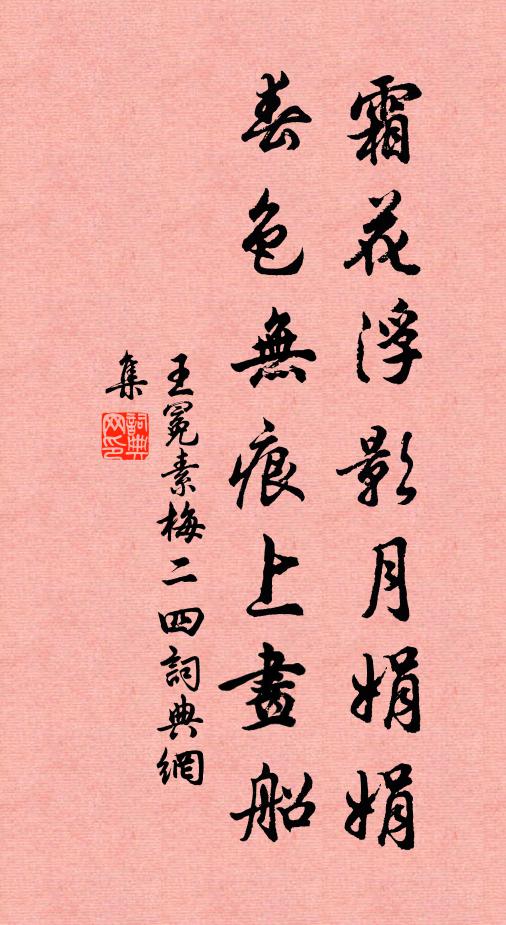 霜花浮影月娟娟
春色無痕上畫船
王冕素梅二四詞典網
集
詞典网印